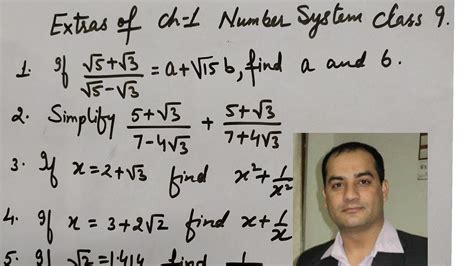 Extras of ch-1 Number System Class 9.
1. If (√5+√3)/(√5-√3) = a+√15 b, find a and b.
2. Simplify (5+√3)/(7-4√3) + (5+√3)/(7+4√3)
3. If x = 2+√3 find x²+1/x²
4. If x = 3+2√2 find x+1/x
5. If √2=1.414 find 1